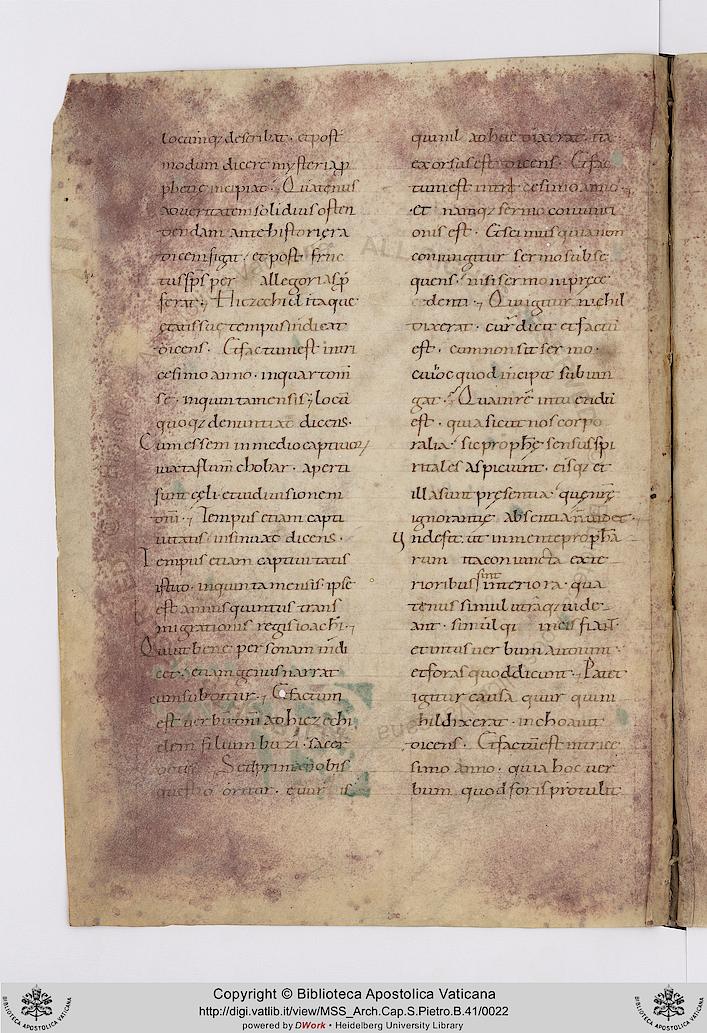 locumq; describat · et post
modum dicere mysteria p̄
phetię incipiat · Quatenus
ad veritatem solidius osten
dendam ante historię ra
dicem figat · et post · fruc
tus sp̄s per allegorias p̄
ferat · Hiezechihel itaque
ętatis suę tempus indicat
dicens · Et factum est in tri
cesimo anno · in quarto m̄
se · in quinta mensis · locū
quoq; denuntiat dicens ·
Cum essem in medio captivorū
iuxta flum̄ chobar · aperti
sunt cęli · et vidi visionem
dn̄i · Tempus etiam capti
vitatis insinuat dicens ·
Tempus etiam captivitatis
isto · in quinta mensis ipse
est annus quintus trans
migrationis regis ioachi ·
Qui ut bene personam indi
cet · etiam genus narrat
cum subditur · Et factum
est verbum dn̄i ad hiezechi
elem filium buzi · sacer
dotis Sed prima nobis
questio oritur · cur is
qui nil adhuc dixerat · ita
exorsus est dicens · Et fac
tum est in tricesimo anno ·
et namq; sermo coniuncti
onis est · Et scimus quia non
coniungitur sermo subse
quens · nisi sermoni prece
denti · Qui igitur nichil
dixerat · cur dicit et factū
est · cum non sit sermo ·
cui hoc quod incipit subiun
gat · Qua in re intuendū
est · quia sicut nos corpo
ralia · sic prophę sensus spi
ritales aspiciunt · eisq; et
illa sunt presentia que nr̄ę
ignorantię absentia videt ·
Unde fit ut in mente propha
rum ita coniuncta exte
rioribus sint interiora · qua
tenus simul utraq; vide
ant · simul q; in eis fiat
et intus verbum audiunt ·
et foras quod dicunt · Patet
igitur causa quur qui ni
hil dixerat · inchoavit
dicens · Et factū est in trice
simo anno · quia hoc ver
bum quod foris protulit
Copyright © Biblioteca Apostolica Vaticana
http://digi.vatlib.it/view/MSS_Arch.Cap.S.Pietro.B.41/0022
powered by DWork • Heidelberg University Library